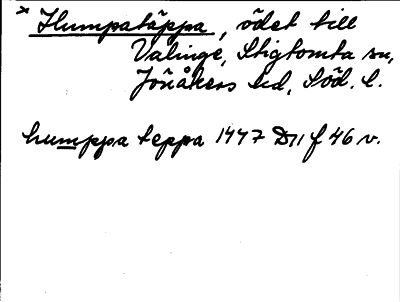 * Humpatäppa, ödet till
Valinge, Stigtomta sn,
Jönåkers hd, Söd. l.
humppa teppa 1447 D11 f 46 v.